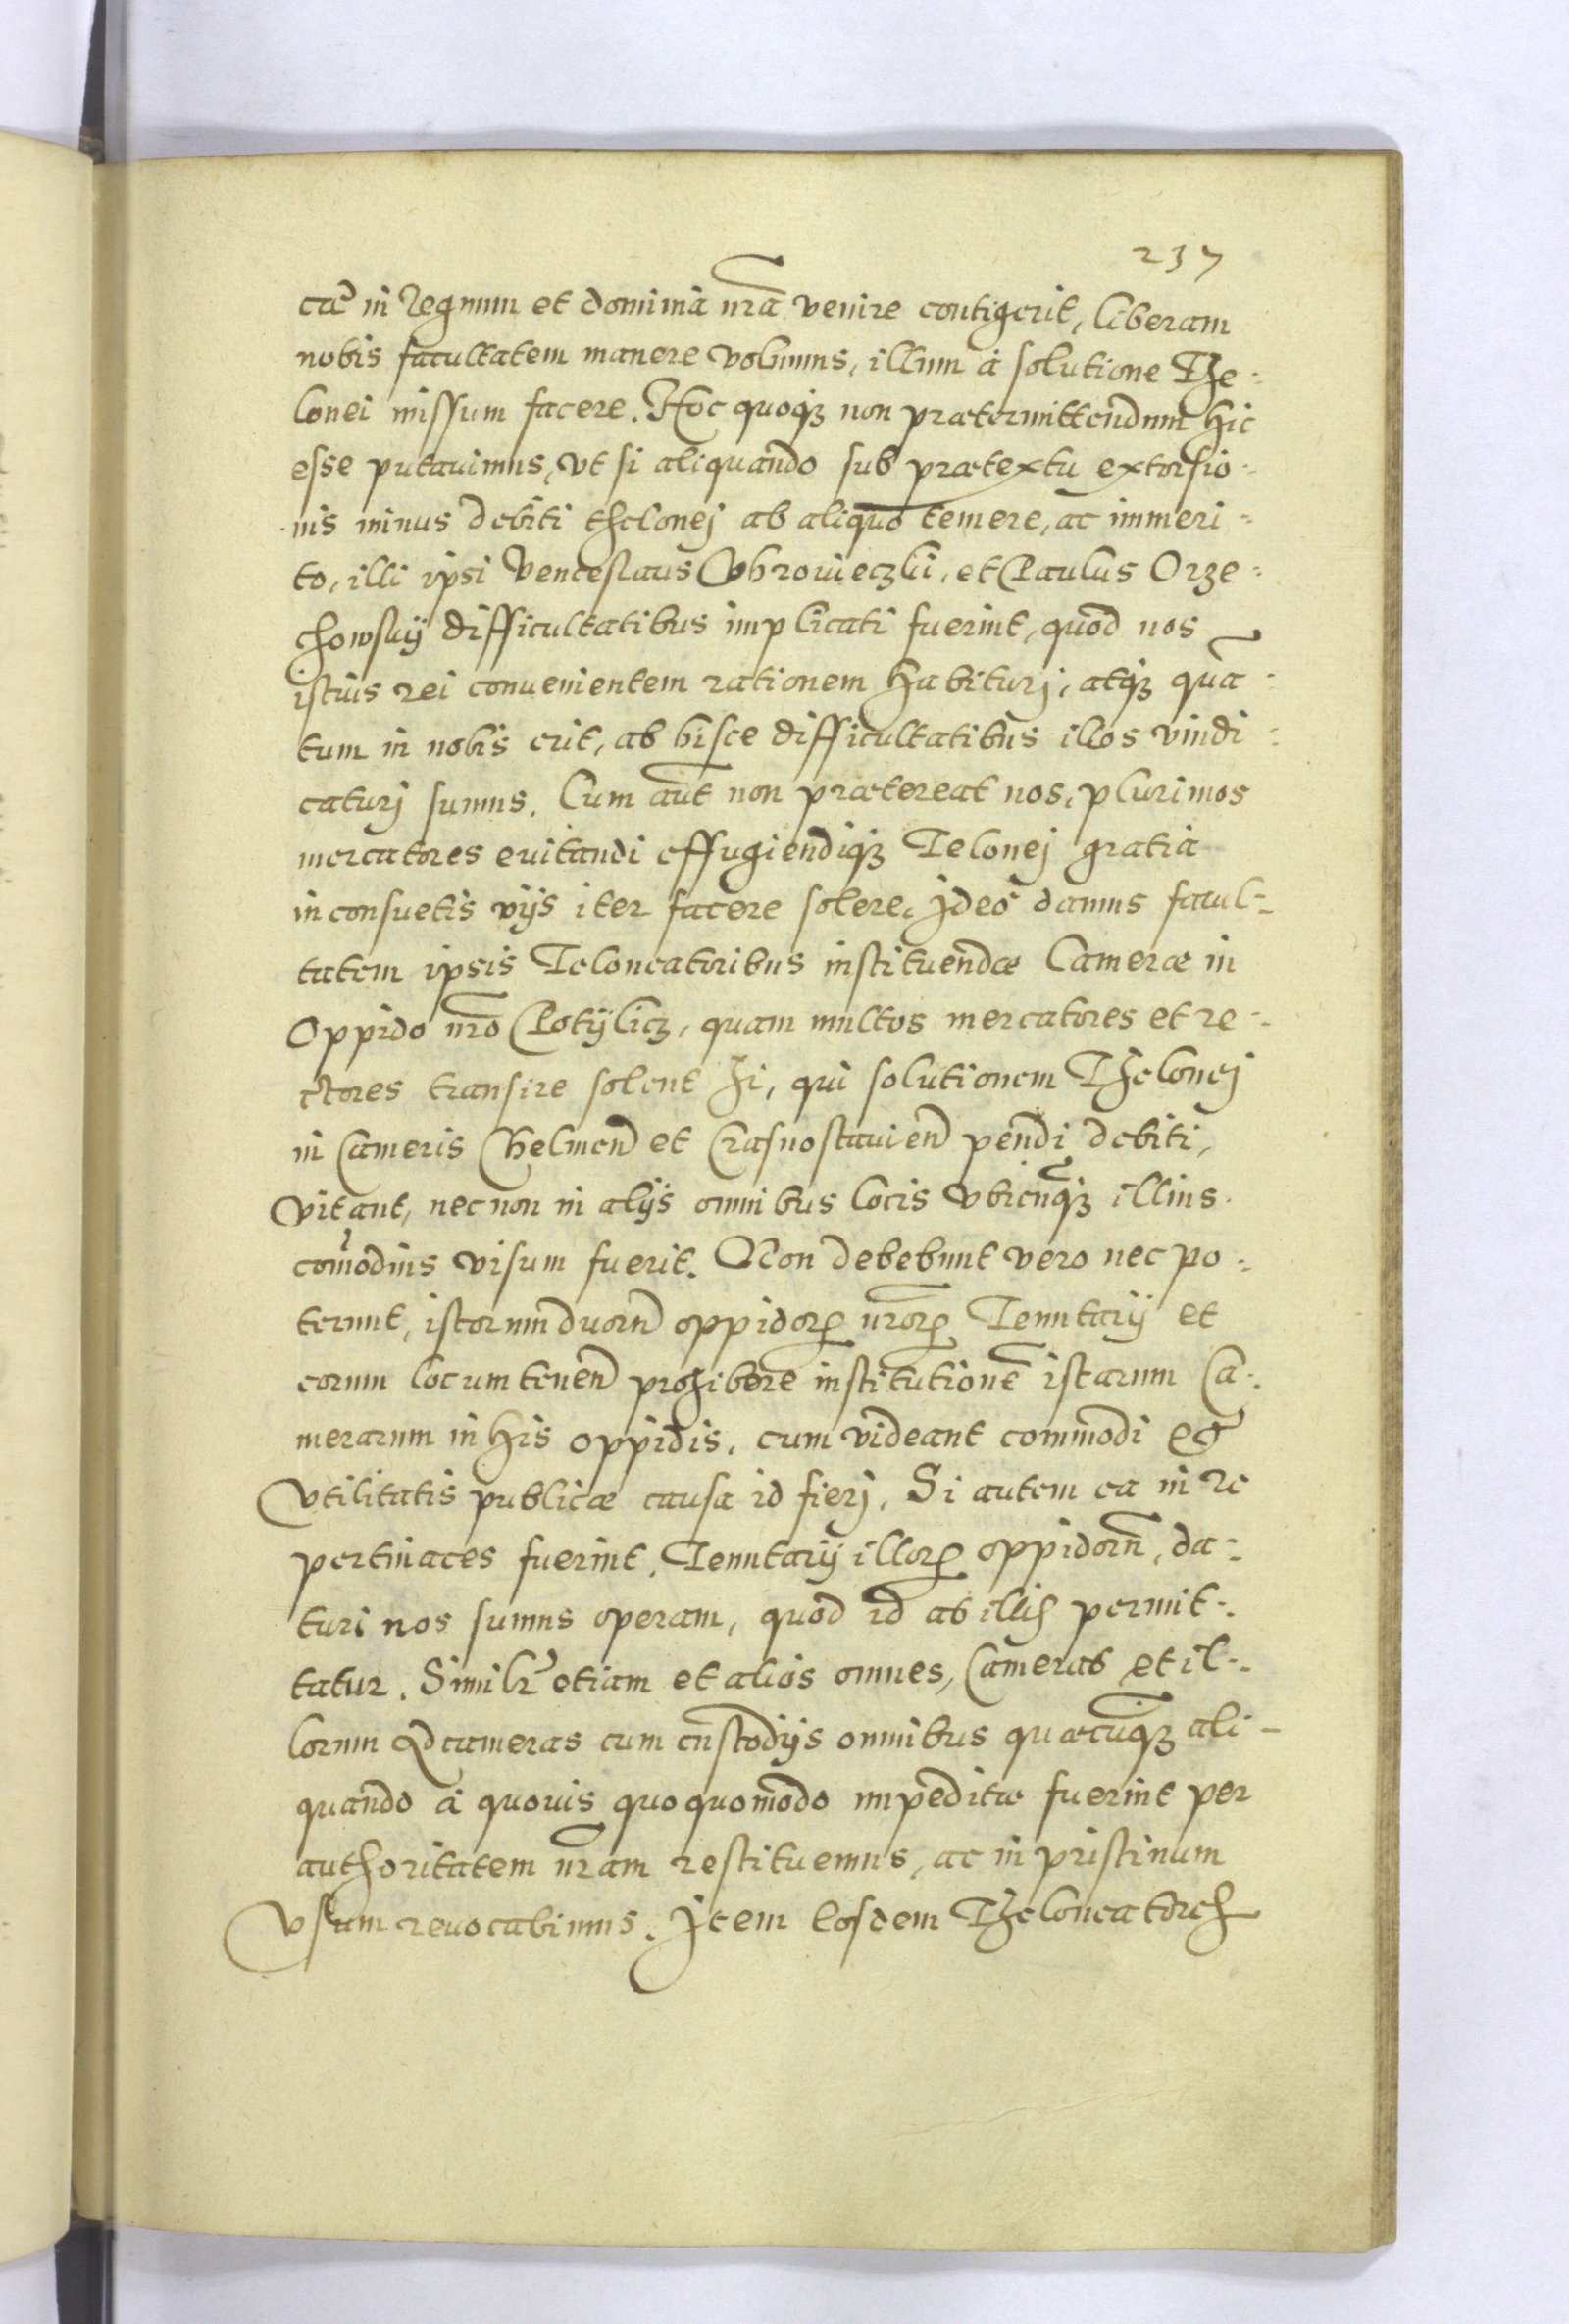 237
cae in Regnum et dominia nra venire contigerit, liberam
nobis facultatem manere volumus, illum à solutione The-
lonei missum facere. Hoc quoqȝ non praetermittendum hic
esse putauimus, vt si aliquando sub praetextu extorsio-
nis minus debiti thelonej ab aliquo temere, ac immeri-
to, illi ipsi Venceslaus Vhrowieczki, et Paulus Orze-
chowskij difficultatibus implicati fuerint, quod nos
istius rei conuenientem rationem habiturj, atqȝ quā-
tum in nobis erit, ab hisce difficultatibus illos vindi-
caturj sumus. Cum aūt non praetereat nos, plurimos
mercatores euitandi effugiendiqȝ Telonej gratia
inconsuetis vijs iter facere solere, jdeo damus facul-
tatem ipsis Teloneatoribus instituendae Camerae in
Oppido nro Potÿlicz, quam multos mercatores et re-
ctores transire solent hi, qui solutionem Thelonej
in Cameris Chelmeñ et Crasnostauieñ pendi debiti,
vitant, nec non in alijs omnibus locis vbicunqȝ illius
com̄odius visum fuerit. Non debebunt vero nec po-
terunt, istorum duorū oppidorꝝ nrorꝝ Tenutarij et
eorum locumtenen̄ prohibere institutionē istarum Ca-
merarum in his oppidis, cum videant commodi et
vtilitatis publicae causa id fierj. Si autem ea in re
pertinaces fuerint, Tenutarij illorꝝ oppidorū, da-
turi nos sumus operam, quod id ab illis permit-
tatur. Similr etiam et alios omnes, Cameras et il-
lorum Adcameras cum custodijs omnibus quaecunqȝ ali-
quando à quouis quoquomodo impeditae fuerint per
authoritatem nram restituemus, ac in pristinum
vsum reuocabimus. Jtem Eosdem Theloneatores